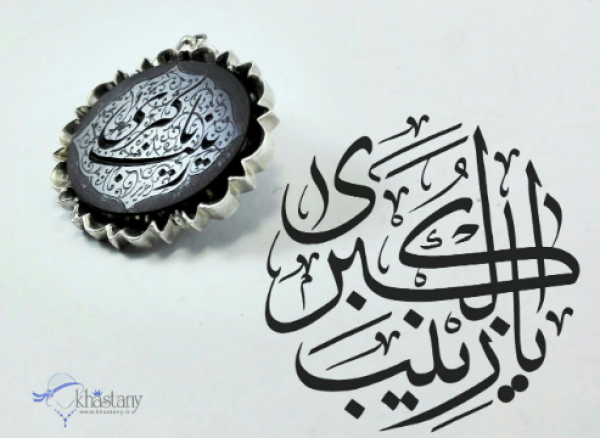 یا زینب الکبری
khastany
www.khastany.ir